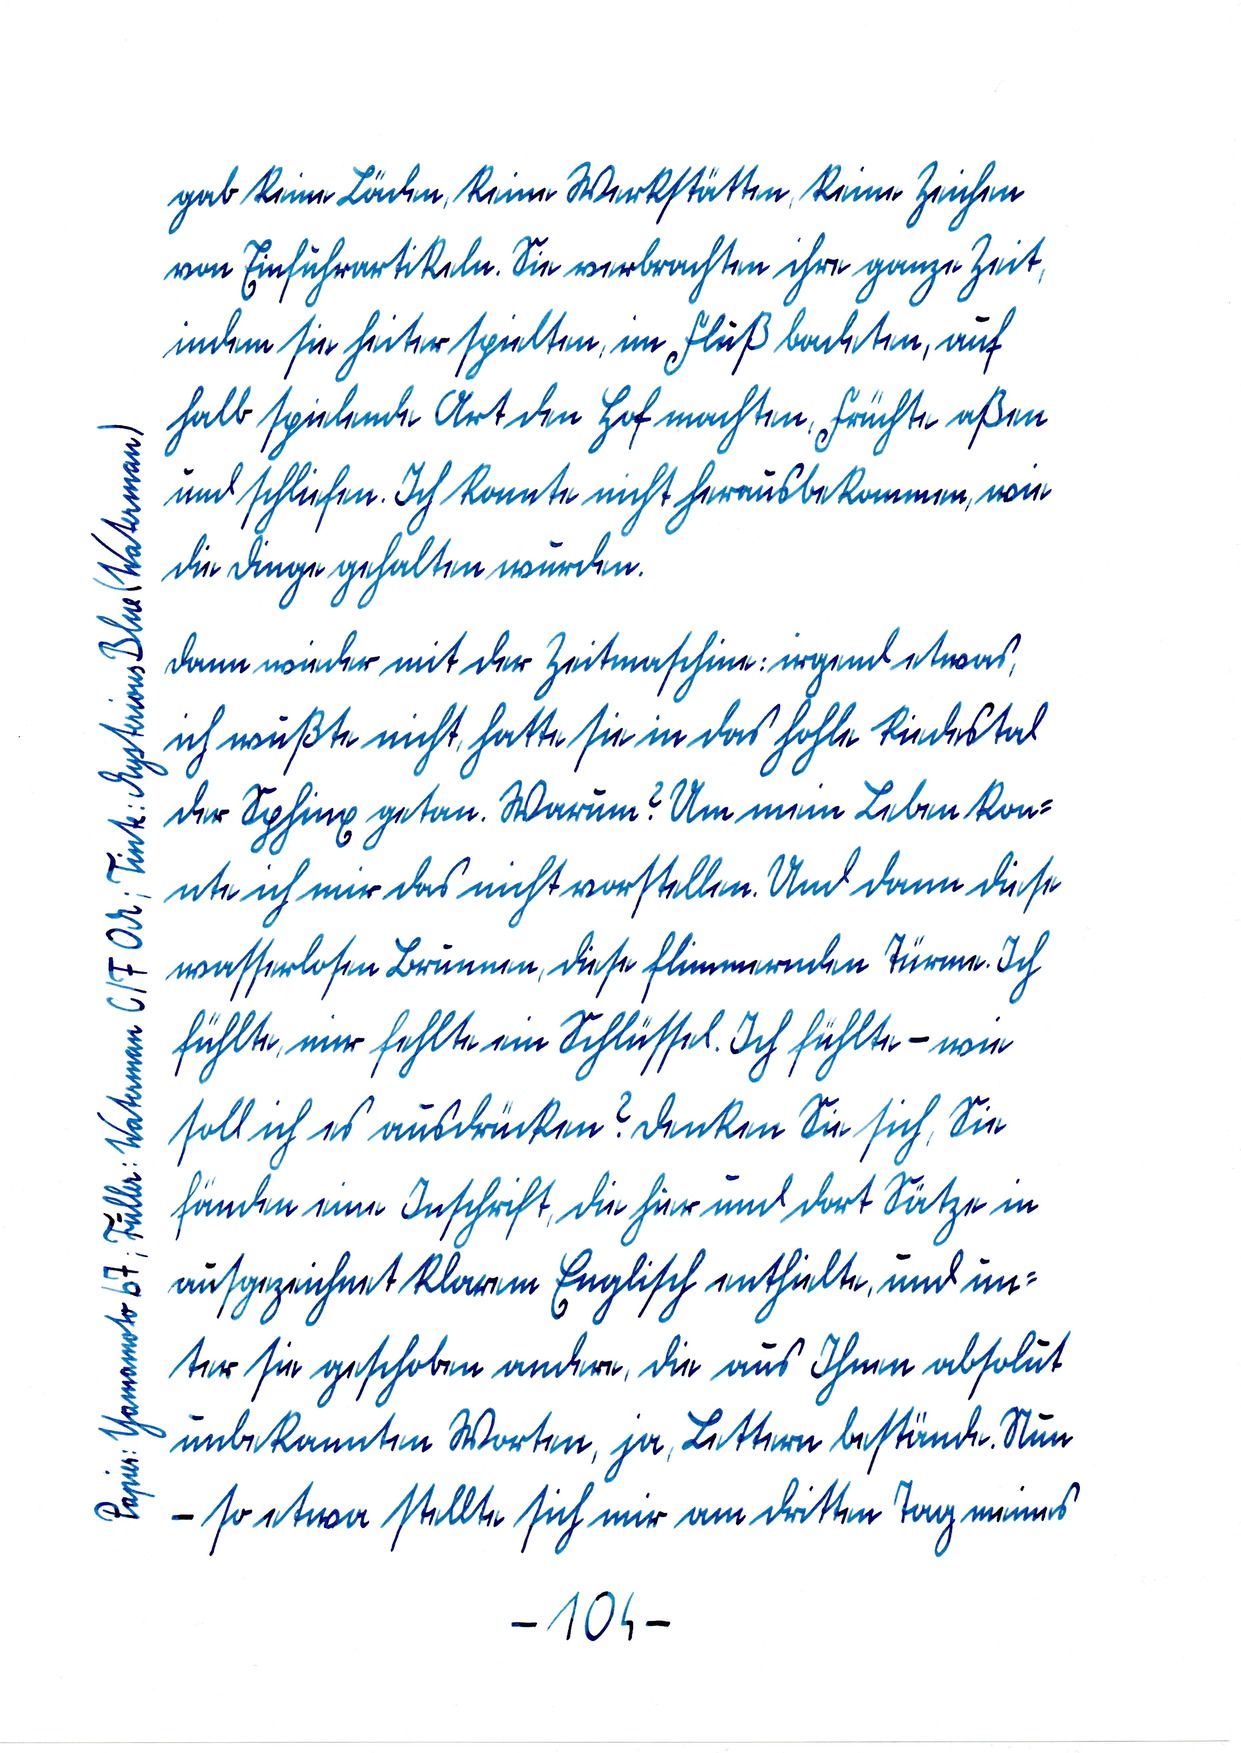 gab keine Läden, keine Werkstätten, keine Zeichen
von Einfuhrartikeln. Sie verbrachten ihre ganze Zeit,
indem sie heiter spielten, im Fluß badeten, auf
halb spielende Art den Hof machten, Früchte aßen
und schliefen. Ich konnte nicht herausbekommen, wie
die Dinge gehalten wurden.
Dann wieder mit der Zeitmaschine: irgend etwas,
ich wußte nicht, hatte sie in das hohle Piedestal
der Sphinx getan. Warum? Um mein Leben kon=
nte ich mir das nicht vorstellen. Und dann diese
wasserlosen Brunnen, diese flimmernden Türme. Ich
fühlte, mir fehlte ein Schlüssel. Ich fühlte – wie
soll ich es ausdrücken? Denken Sie sich, Sie
fänden eine Inschrift, die hier und dort Sätze in
ausgezeichnet klarem Englisch enthielte, und un=
ter sie geschoben andere, die aus Ihnen absolut
unbekannten Worten, ja, Lettern bestände. Nun
– so etwa stellte sich mir am dritten Tag meines
– 104 –
Papier: Yamamoto b7; Füller: Waterman C/F; Tinte: Mysterious Blue (Waterman)